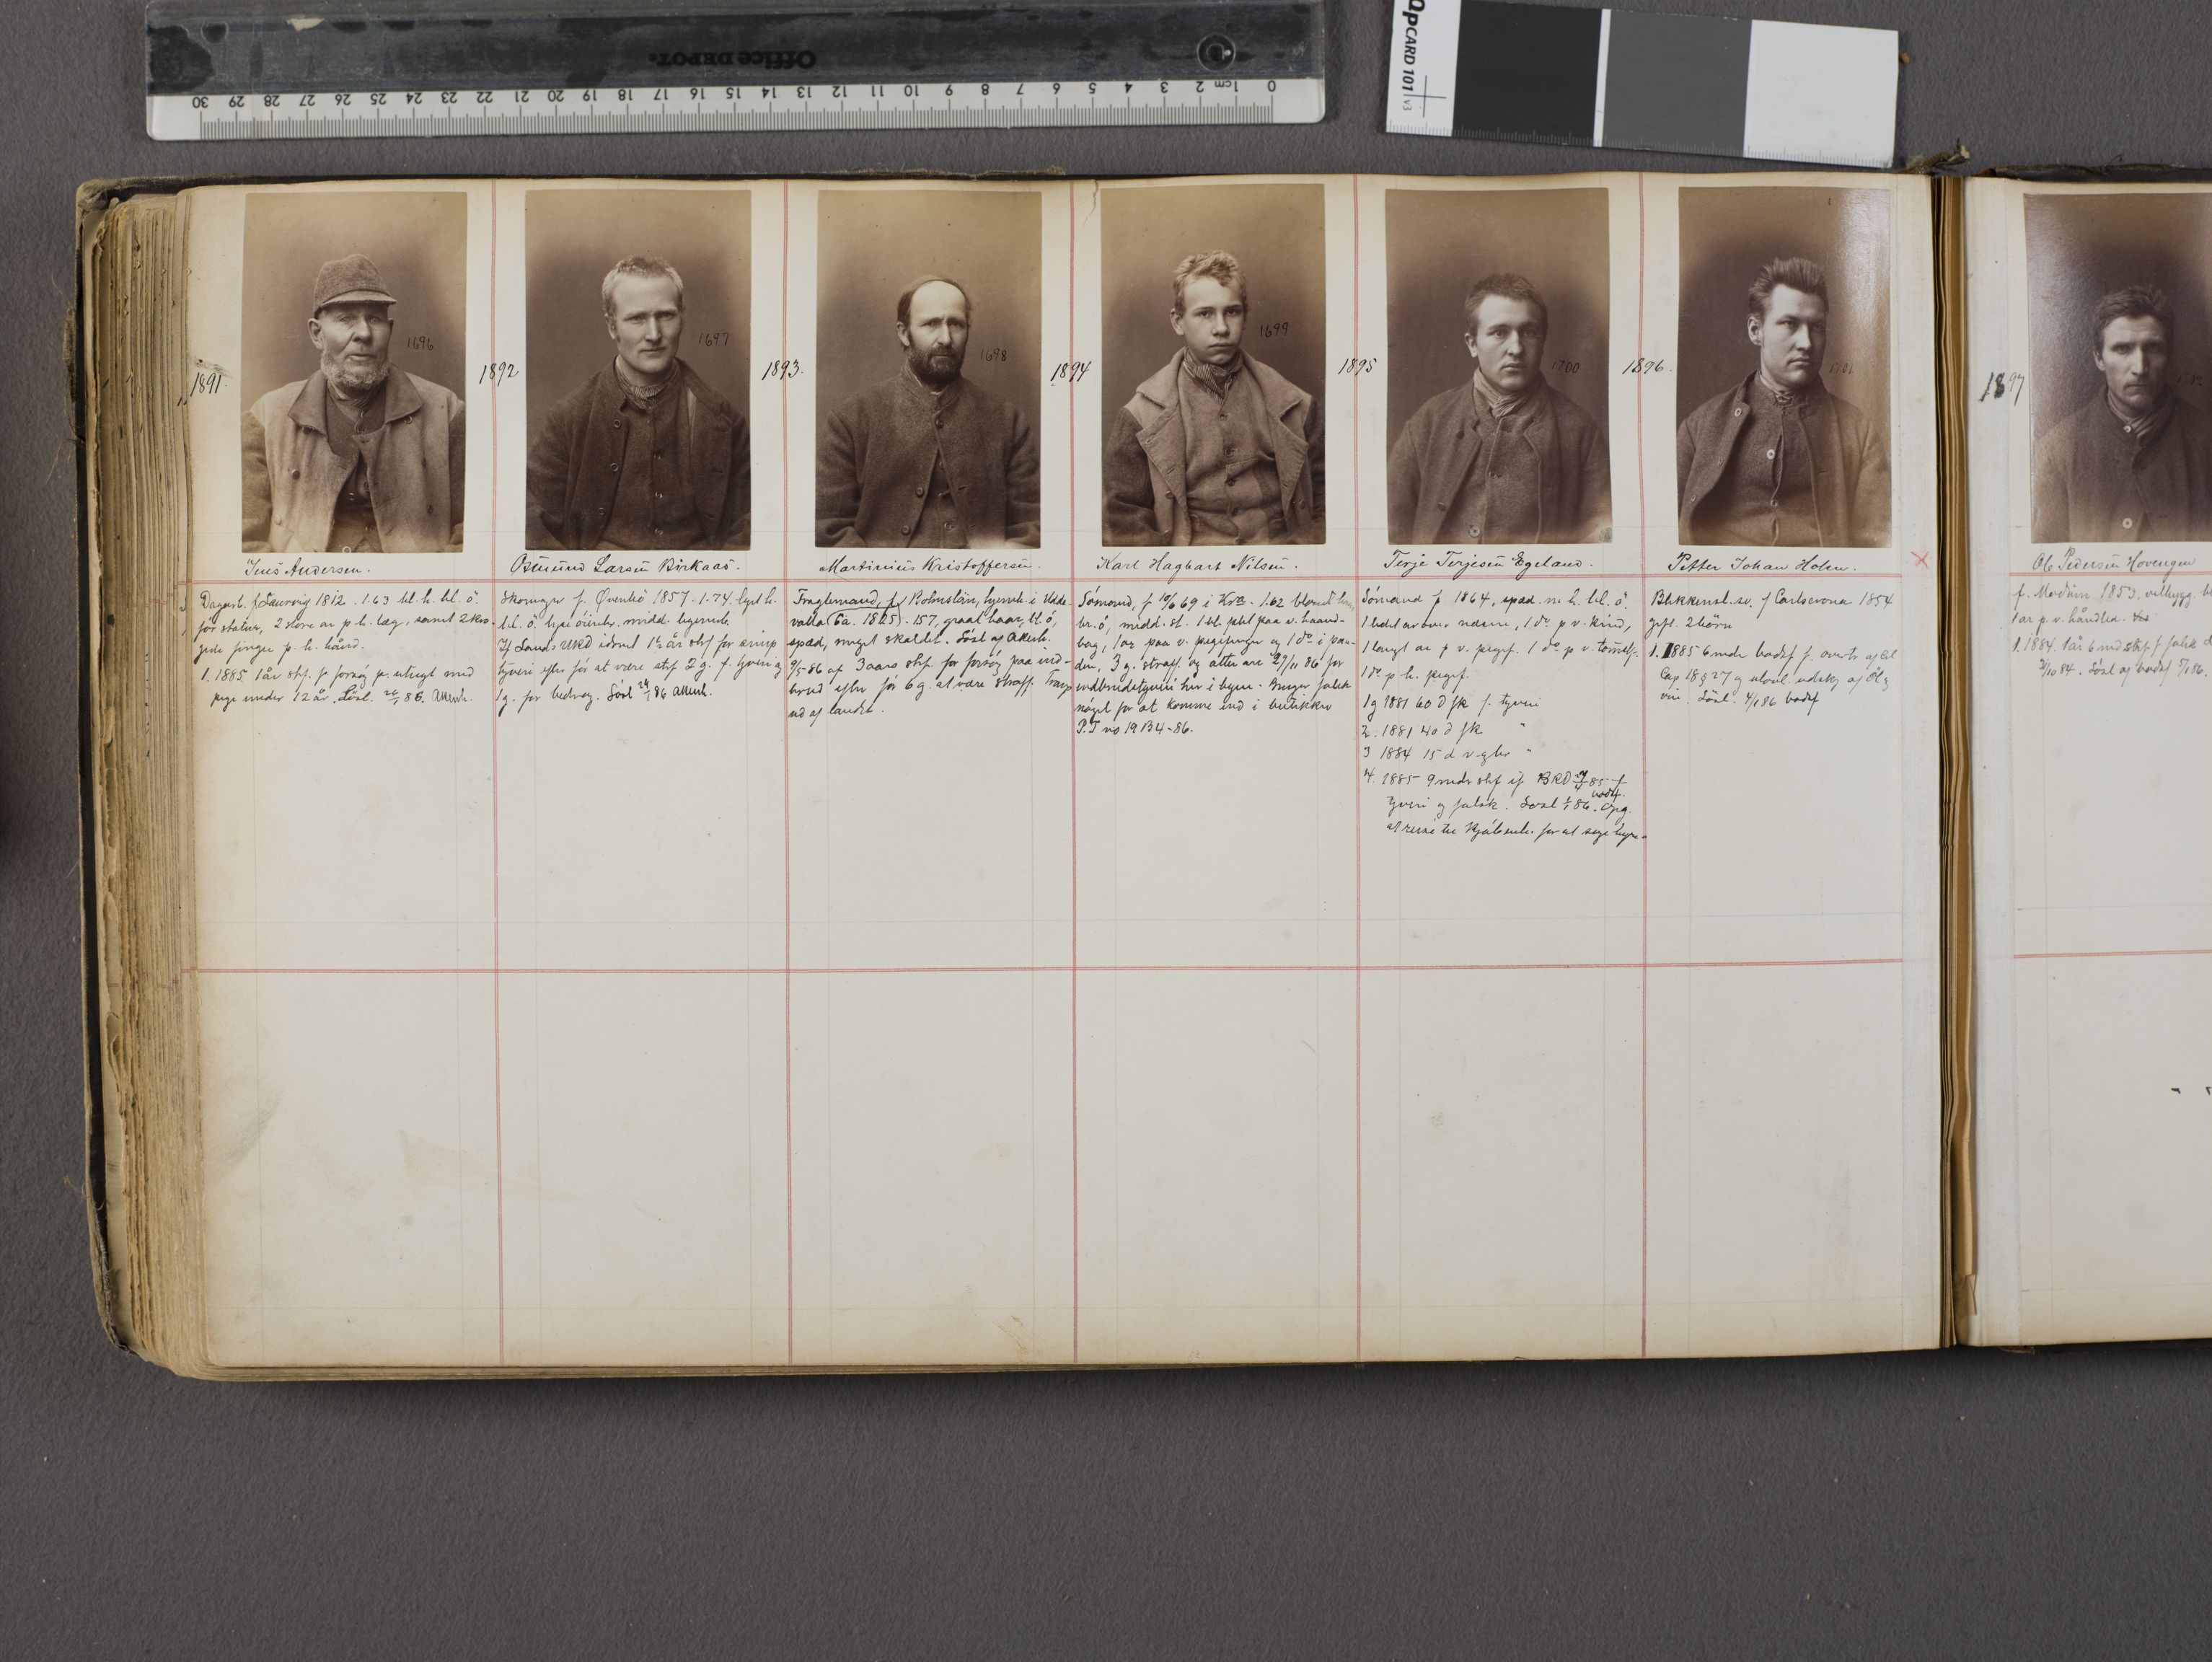 Office DEPOT.
0 1cm 2 3 4 5 6 7 8 9 10 11 12 13 14 15 16 17 18 19 20 21 22 23 24 25 26 27 28 29 30
QPCARD 101 v3
1891.
1696
Jens Andersen.
Dagarb. f Laurvig 1812. 1.63 bl. h. bl. ö.
før statur, 2 store ar p h. læg, samt 2
finger p. h. hånd.
1. 1885 1 år stf. f. forsøg p. utugt med
pige under 12 år. Løsl. 86. Akersh.
1892
1697
Osmund Larsen Birkaas.
Skomager f. 1857. 1.74. lyst h.
bl. ö. midd. legeme
1½ år stf for simp
tyveri efter før at være stf 2 g. f. tyveri og
1 g. for bedrag. Løsl 86 Akersh.
1893.
1698
Martinius Kristoffersen.
Fragtemand, f Bohuslän, hjemmeh. i Udde-
valla (Ca. 1825). 157, graat haar, bl ö,
spæd, meget skaldet. Løsl af Akersh.
9/5 86 af 3 aars stf. for forsøg paa ind-
brud efter før 6 g. at være straff. Transp
ud af landet.
1894
1699
Karl Hagbart Nilsen.
Sømand, f 10/6 69 i Kra. 1.62 blond
br. ö, midd. st. 1 bl. plet paa v. haand-
bag, 1 ar paa v. pegefinger og 1 do i pan-
den, 3 g. straff. og atter arr 27/11 86 for
indbrudstyveri her i byen. Bruger falsk
nøgel for at komme ind i butikker
P.T no 19 B 4-86.
1895
1700
Terje Terjesen Egeland.
Sømand f 1864, spæd. bl. ö.
1 do p v. kind,
1 langt ar p v. pegef. 1 do p v. tommelf.
1 do p h. pegef.
1 g 1881 60 d fk f. tyveri
2. 1881 40 d fk "
3 1884 15 d v. "
4. 1885 9 mdr stf if BRD 85 f
tyveri og falsk. Løsl 86. Opg.
at reise til for at søge hyre.
1896.
1701
Petter Johan Holm.
Blikkensl. sv. f Carlscrona 1854
gift. 2 börn
1. 1885 6 mdr bodsf f. overtr af Crl
Cap 18 § 27 g udsalg af Öl og
vin. Løsl. 4/1 86 bodsf
1897
Ole Pedersen Hovengen
f. Modum 1853,
1 ar p. v. håndled.
1. 1884. 1 år 6 md stf f falsk
84. Løsl af bodsf 86.